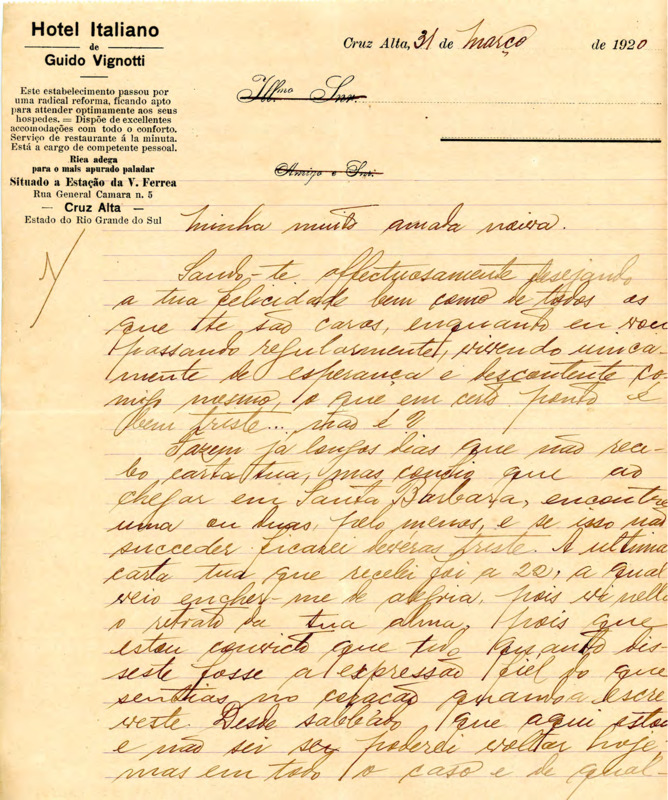 Hotel Italiano
de
Guido Vignotti
Este estabelecimento passou por
uma radical reforma, ficando apto
para attender optimamente aos seus
hospedes. = Dispõe de excellentes
accomodações com todo o conforto.
Serviço de restaurante á la minuta.
Está a cargo de competente pessoal.
Rica adega
para o mais apurado paladar
Situado a Estação da V. Ferrea
Rua General Camara n. 5
— Cruz Alta —
Estado do Rio Grande do Sul
Cruz Alta, 31 de Março de 1920
Ill.mo Snr.
Amigo e Snr.
Minha muito amada noiva.
Saudo-te affectuosamente desejando
a tua felicidade bem como de todos os
que te são caros, enquanto eu vou
passando regularmente, vivendo unica-
mente de esperança e descontente co-
migo mesmo, o que em certo ponto é
bem triste... não é?
Fazem já longos dias que não rece-
bo carta tua, mas confio que ao
chegar em Santa Barbara, encontre
uma ou duas, pelo menos, e se isso não
succeder ficarei deveras triste. A ultima
carta tua que recebi foi a 22, a qual
veio encher-me de alegria, pois vi nella
o retrato da tua alma, pois que
estou convicto que tudo quanto dis-
seste fosse a expressão fiel do que
sentias no coração quando a escre-
veste. Desde sabbado que aqui estou
e não sei se poderei voltar hoje,
mas em todo o caso e de qual-